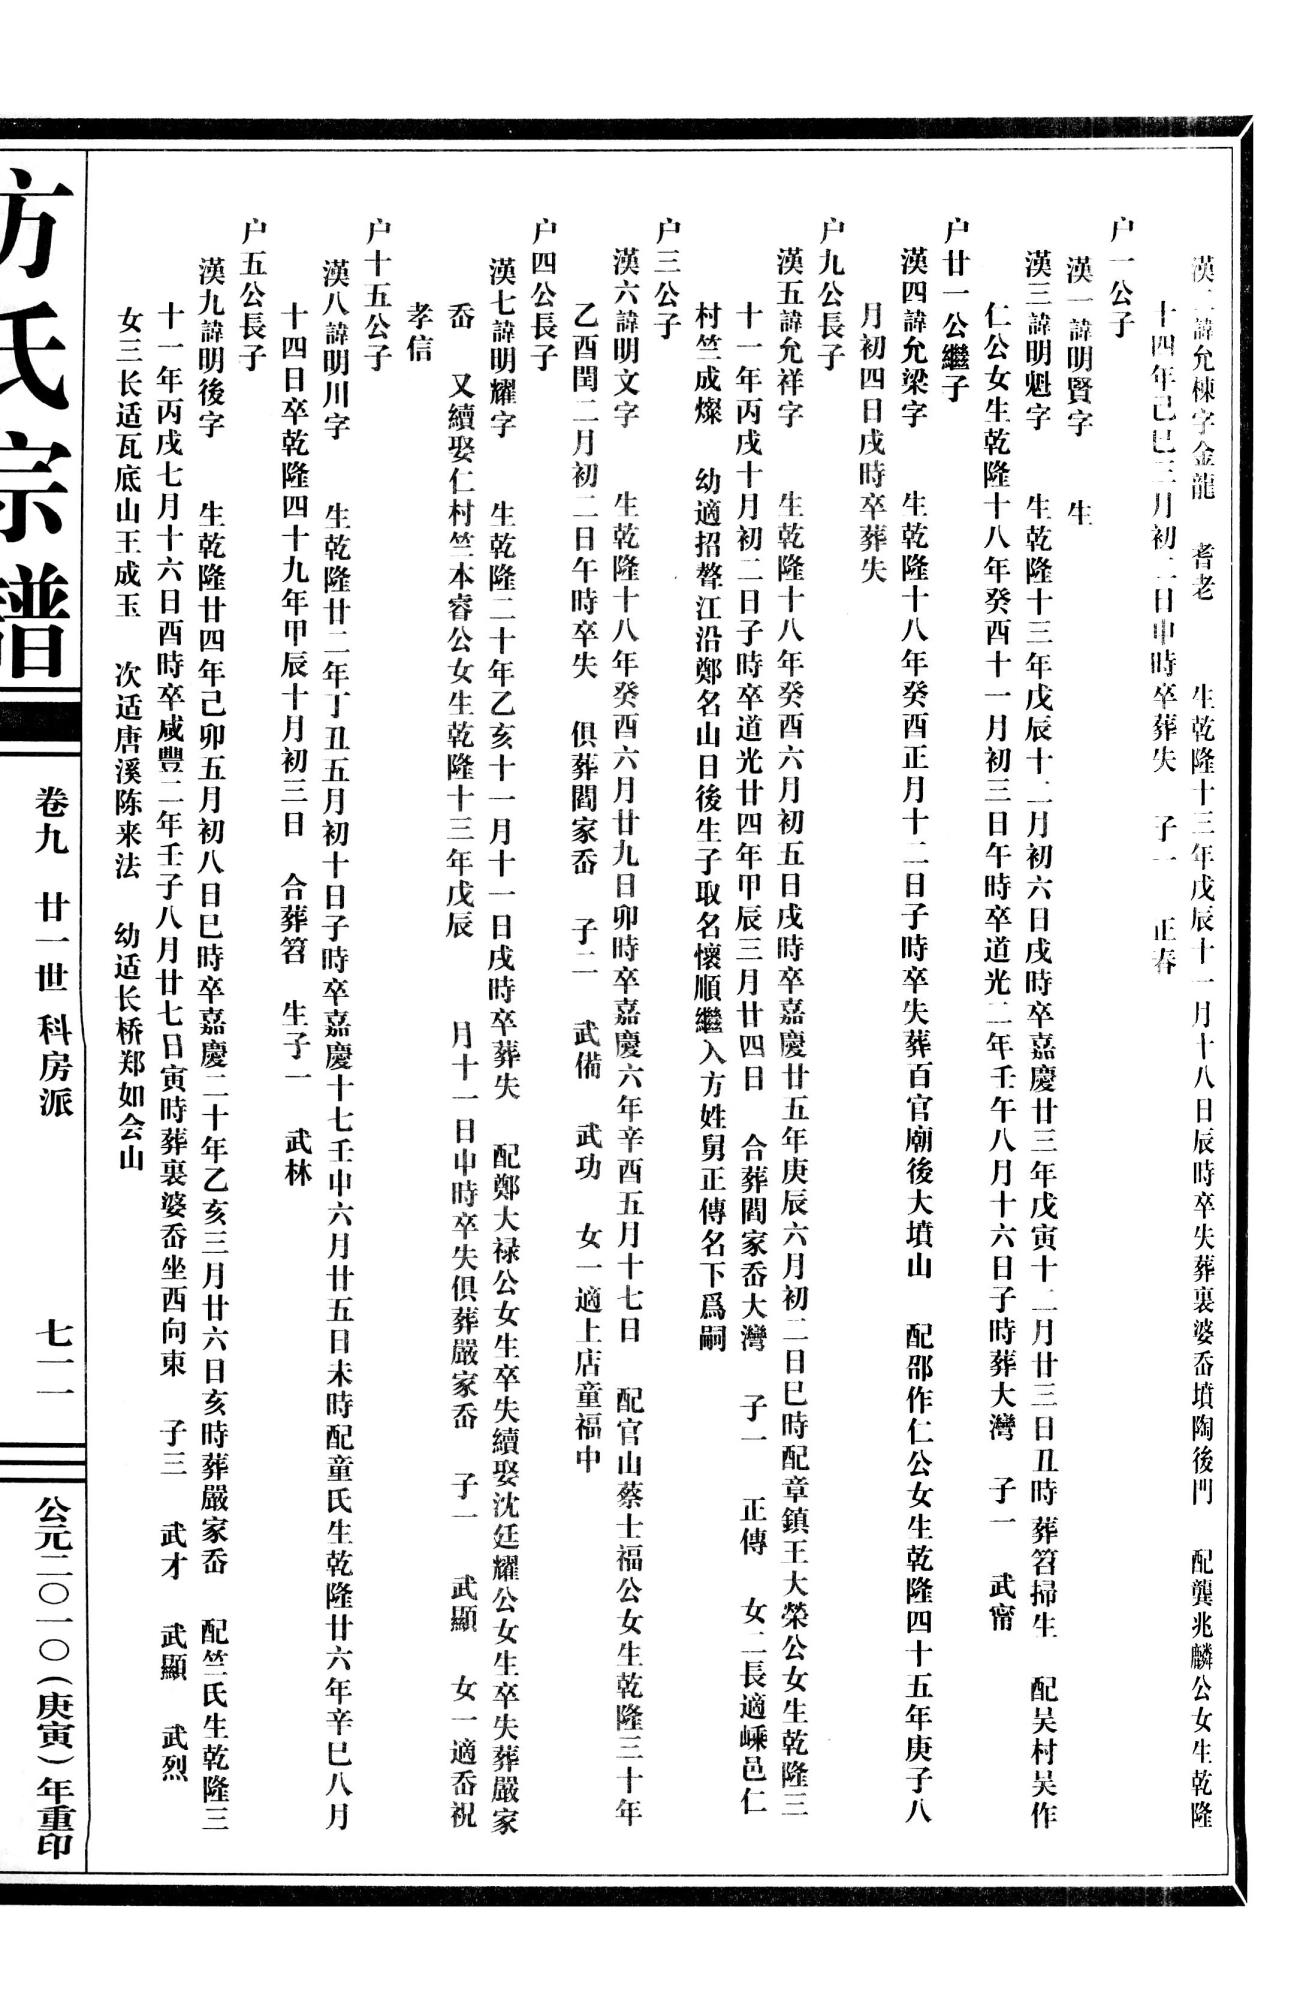 漢二諱允棟字金龍　耆老　生乾隆十三年戊辰十一月十八日辰時卒失葬裏婆岙墳陶後門　配龔兆麟公女生乾隆
十四年己巳三月初二日申時卒葬失　子一　正春
户一公子
漢一諱明賢字　生
漢三諱明魁字　生乾隆十三年戊辰十二月初六日戌時卒嘉慶廿三年戊寅十二月廿三日丑時葬筲掃生　配吴村吴作
仁公女生乾隆十八年癸酉十一月初三日午時卒道光二年壬午八月十六日子時葬大灣　子一　武甯
户廿一公繼子
漢四諱允梁字　生乾隆十八年癸酉正月十二日子時卒失葬百官廟後大墳山　配邵作仁公女生乾隆四十五年庚子八
月初四日戌時卒葬失
户九公長子
漢五諱允祥字　生乾隆十八年癸酉六月初五日戌時卒嘉慶廿五年庚辰六月初二日巳時配章鎮王大榮公女生乾隆三
十一年丙戌十月初二日子時卒道光廿四年甲辰三月廿四日　合葬閻家岙大灣　子一　正傳　女二長適嵊邑仁
村竺成燦　幼適招贅江沿鄭名山日後生子取名懷順繼入方姓舅正傳名下爲嗣
户三公子
漢六諱明文字　生乾隆十八年癸酉六月廿九日卯時卒嘉慶六年辛酉五月十七日　配官山蔡士福公女生乾隆三十年
乙酉閏二月初二日午時卒失　俱葬閻家岙　子二　武備　武功　女一適上店童福中
户四公長子
漢七諱明耀字　生乾隆二十年乙亥十一月十一日戌時卒葬失　配鄭大禄公女生卒失續娶沈廷耀公女生卒失葬嚴家
岙　又續娶仁村竺本睿公女生乾隆十三年戊辰　月十一日申時卒失俱葬嚴家岙　子一　武顯　女一適岙祝
孝信
户十五公子
漢八諱明川字　生乾隆廿二年丁丑五月初十日子時卒嘉慶十七壬申六月廿五日未時配童氏生乾隆廿六年辛巳八月
十四日卒乾隆四十九年甲辰十月初三日　合葬筲　生子一　武林
户五公長子
漢九諱明後字　生乾隆廿四年己卯五月初八日巳時卒嘉慶二十年乙亥三月廿六日亥時葬嚴家岙　配竺氏生乾隆三
十一年丙戌七月十六日酉時卒咸豐二年壬子八月廿七日寅時葬裏婆岙坐西向東　子三　武才　武顯　武烈
女三长适瓦底山王成玉　次适唐溪陈来法　幼适长桥郑如会山
方氏宗譜
卷九　廿一世　科房派
七一一
公元二〇一〇（庚寅）年重印